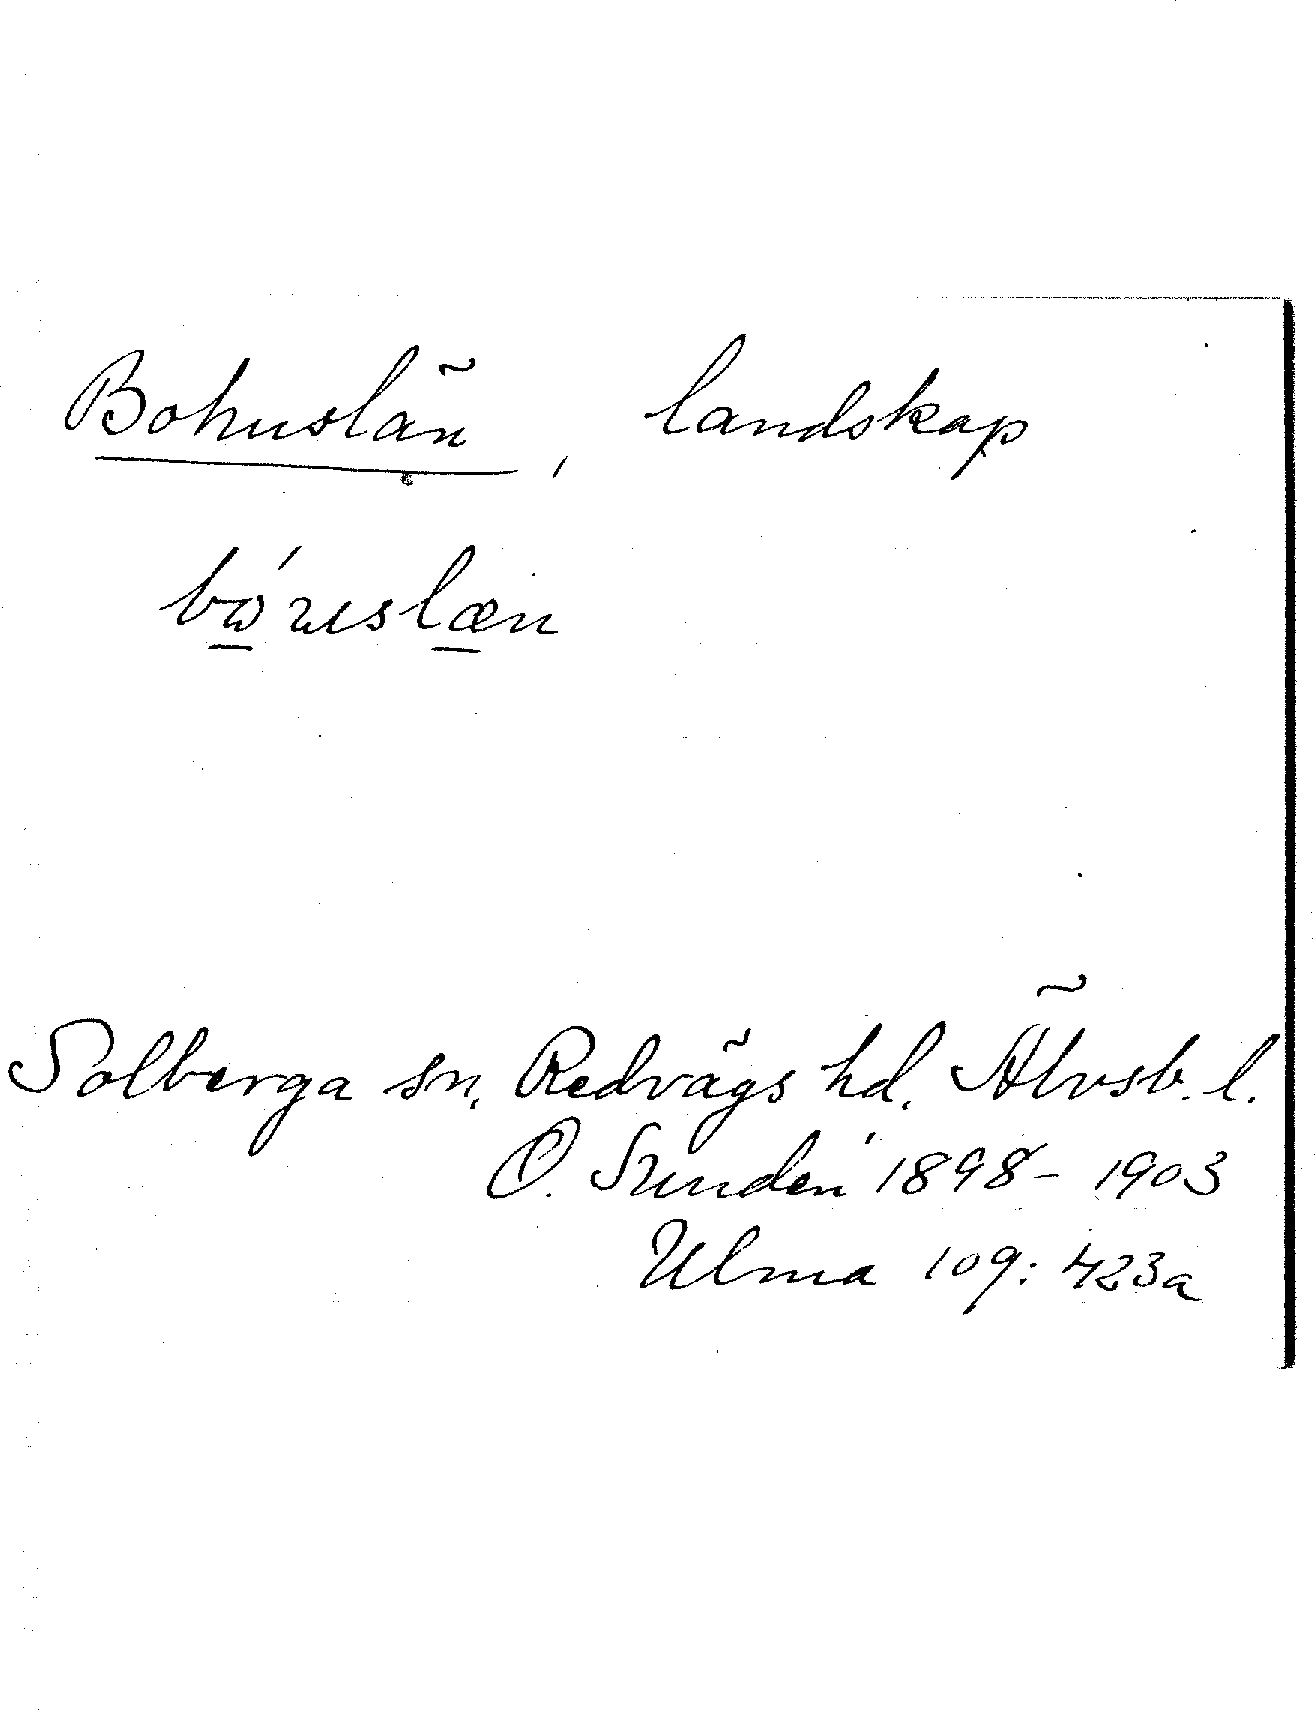 Bohuslän, landskap
Solberga sn, Redvägs hd. Älvsb. l.
O. Sundén 1898–1903
Ulma 109: 423a